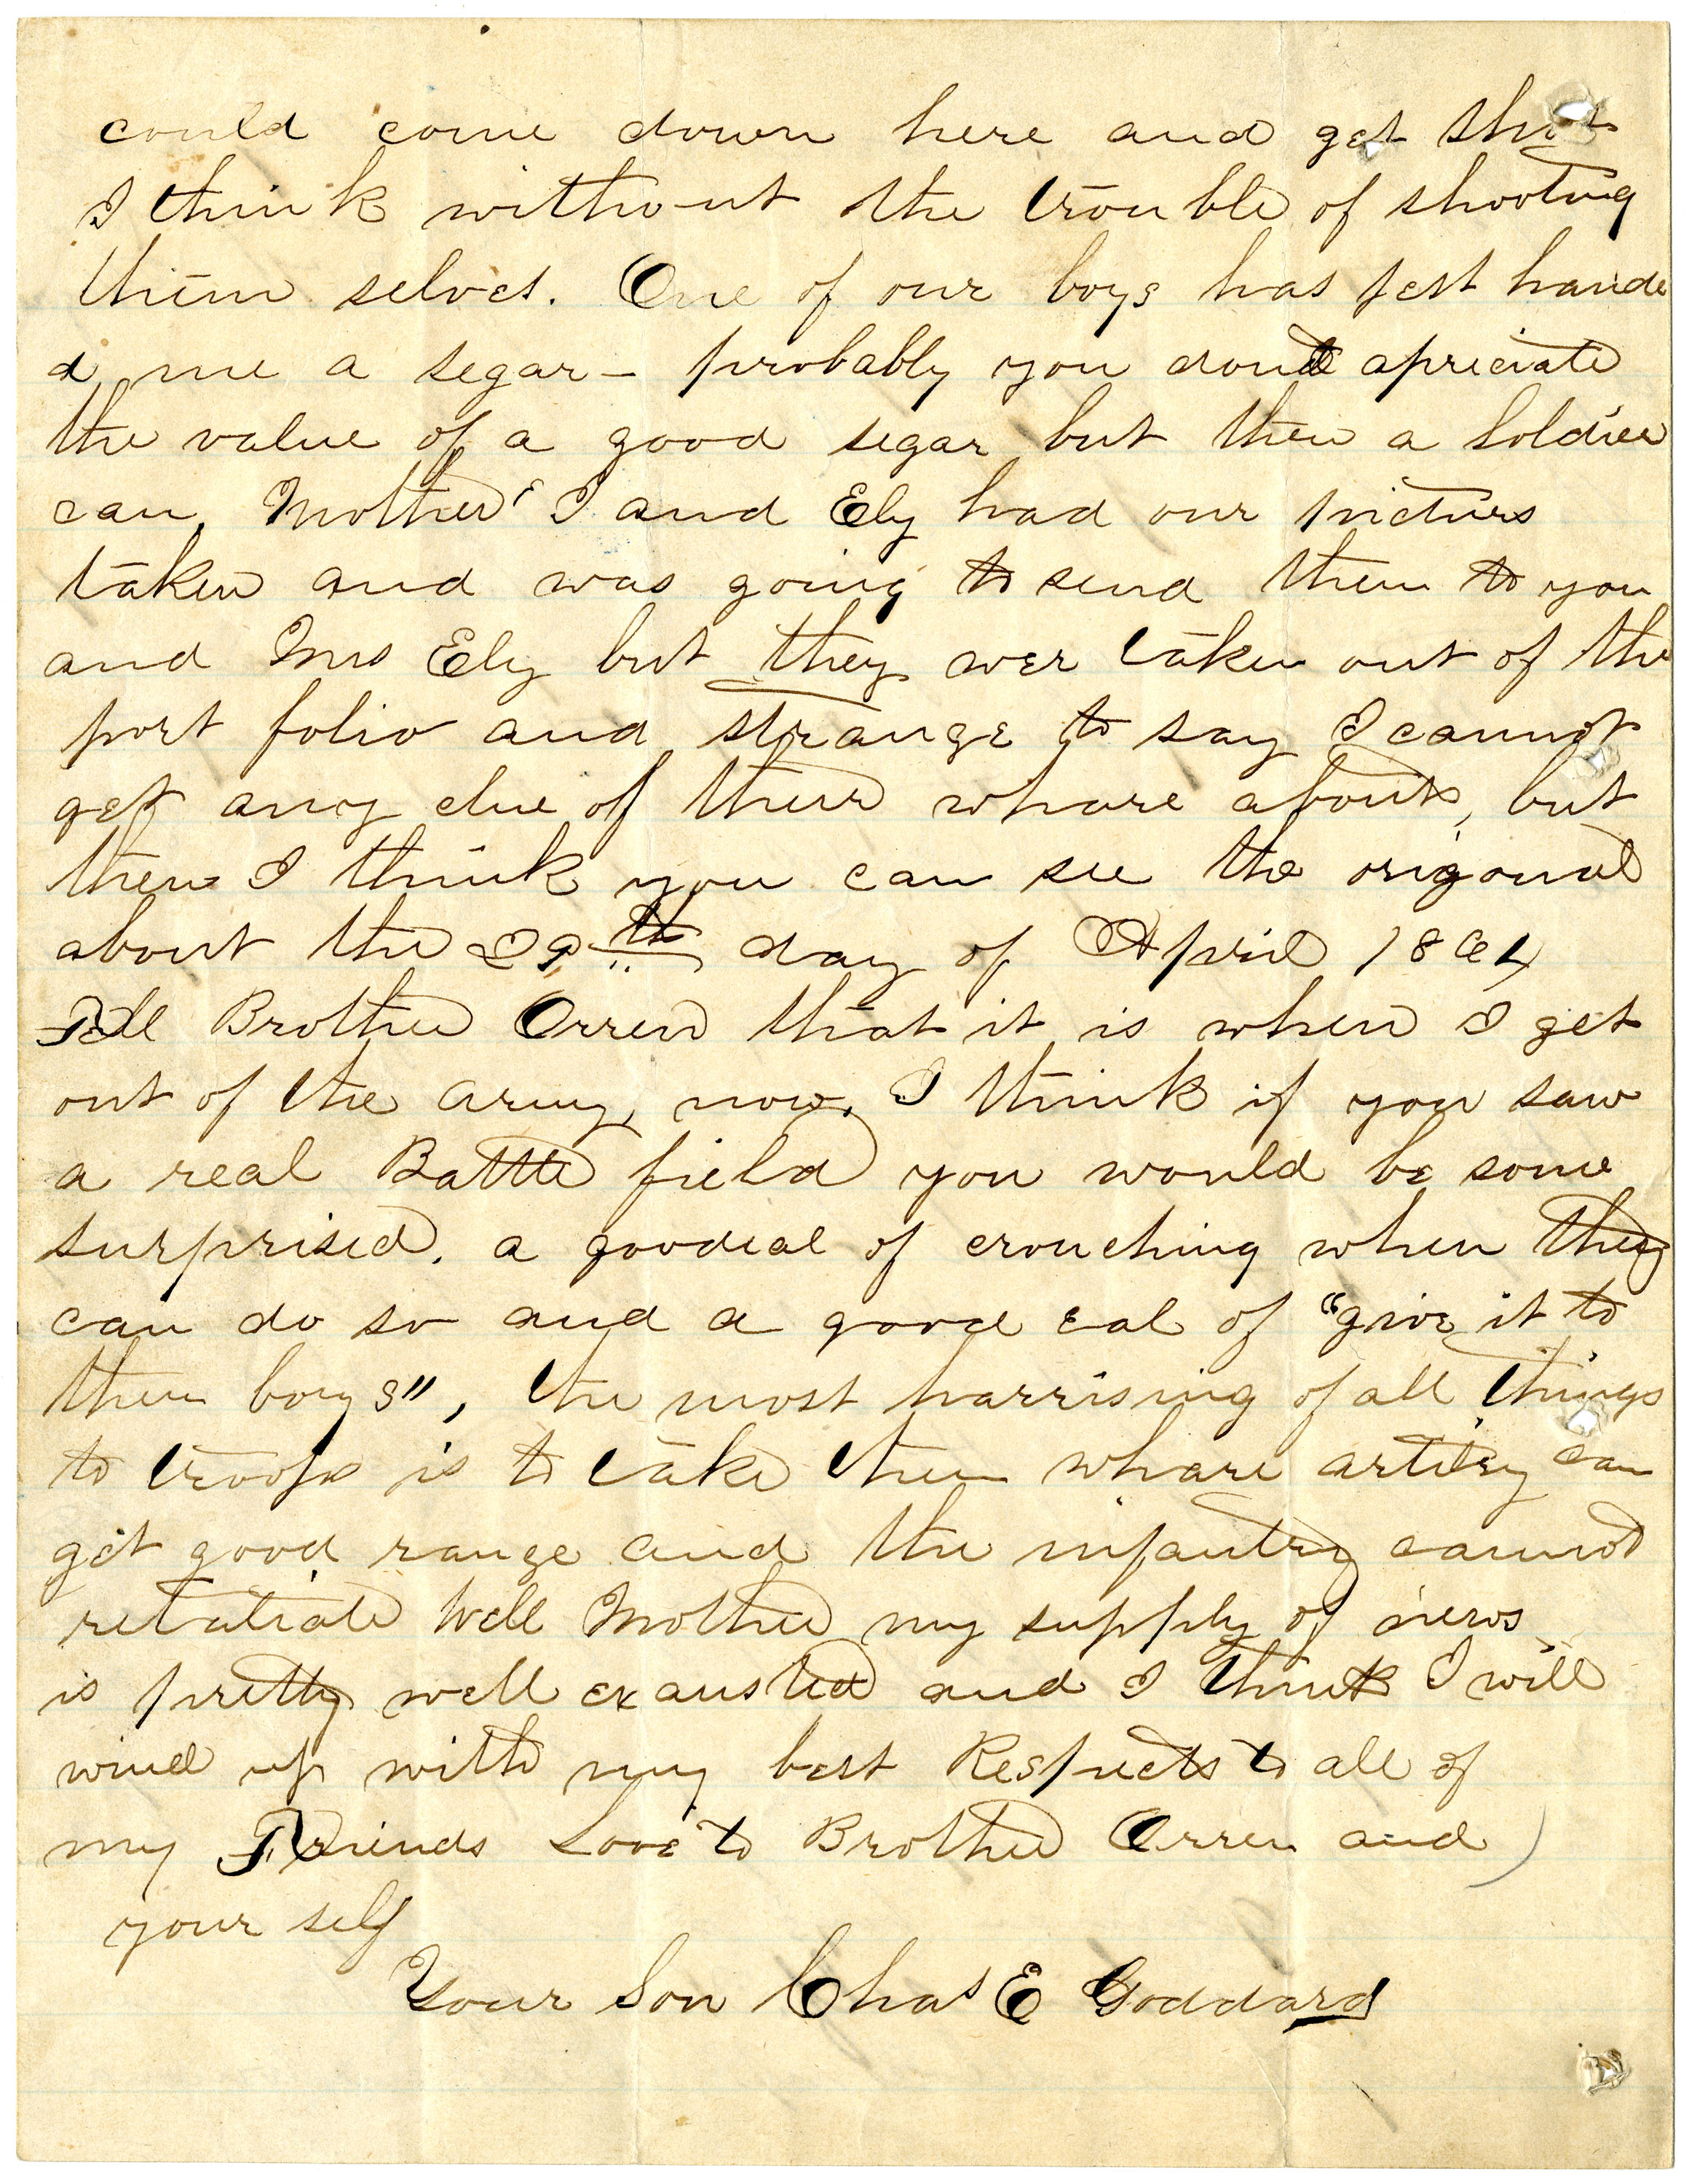 could come down here and get shot
I think without the trouble of shooting
them selves. One of our boys has jest hande
d me a segar - probably you dont apreciate
the value of a good segar but then a Soldier
can, Mother I and Ely had our picturs
taken and was going to send them to you
and Mrs Ely but they wer taken out of the
port folio and strange to say I cannot
get any clue of their whare abouts, but
then I think you can see the origonal
about the 29th day of April 1864
Tell Brother Orren that it is when I get
out of the army, now, I think if you saw
a real Battle field you would be some
surprised, a goodeal of crouching when they
can do so and a good eal of "give it to
them boys", the most harrising of all things
to troops is to take them whare artilry can
get good range and the infantry cannot
retatiate Well Mother my supply of news
is pretty well exausted and I think I will
wind up with my best Respects to all of
my Friends Love to Brother Orren and
your self
Your Son Chas E Goddard